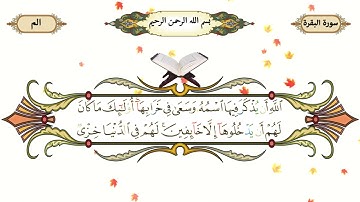 سورة البقرة
بسم الله الرحمن الرحيم
الم
اللَّهِ أَن يُذْكَرَ فِيهَا اسْمُهُ وَسَعَىٰ فِي خَرَابِهَا ۚ أُولَٰئِكَ مَا كَانَ
لَهُمْ أَن يَدْخُلُوهَا إِلَّا خَائِفِينَ ۚ لَهُمْ فِي الدُّنْيَا خِزْيٌ